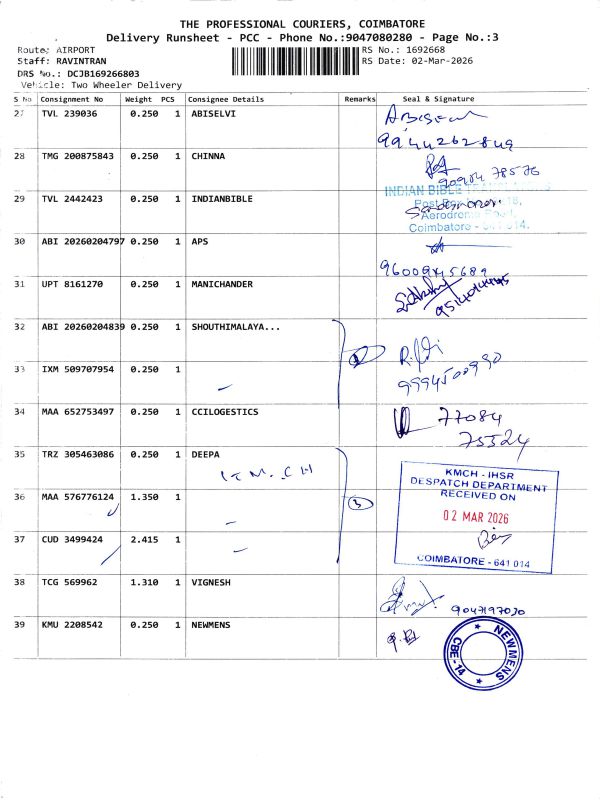 THE PROFESSIONAL COURIERS, COIMBATORE
Delivery Runsheet - PCC - Phone No.:9047080280 - Page No.:3
Route: AIRPORT
RS No.: 1692668
Staff: RAVINTRAN
RS Date: 02-Mar-2026
DRS No.: DCJB169266803
Vehicle: Two Wheeler Delivery
S No Consignment No Weight PCS Consignee Details Remarks Seal & Signature
27 TVL 239036 0.250 1 ABISELVI
9944262849
28 TMG 200875843 0.250 1 CHINNA
90904 78576
29 TVL 2442423 0.250 1 INDIANBIBLE
INDIAN BIBLE
Post Box
Aerodrome Post,
Coimbatore - 641 014.
30 ABI 20260204797 0.250 1 APS
9600945689
31 UPT 8161270 0.250 1 MANICHANDER
32 ABI 20260204839 0.250 1 SHOUTHIMALAYA...
33 IXM 509707954 0.250 1
9994500990
34 MAA 652753497 0.250 1 CCILOGESTICS
77084
75524
35 TRZ 305463086 0.250 1 DEEPA
36 MAA 576776124 1.350 1
3
KMCH - IHSR
DESPATCH DEPARTMENT
RECEIVED ON
02 MAR 2026
COIMBATORE - 641 014
37 CUD 3499424 2.415 1
38 TCG 569962 1.310 1 VIGNESH
9047197030
39 KMU 2208542 0.250 1 NEWMENS
NEWMENS
CBE-14